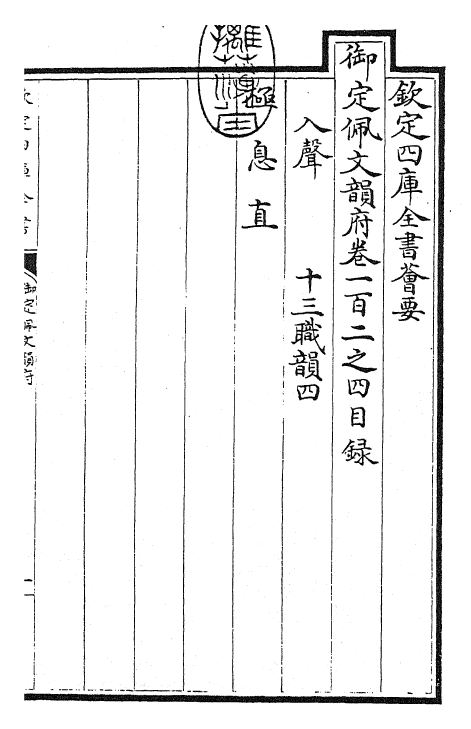 欽定四庫全書薈要
御定佩文韻府卷一百二之四目録
入聲
十三職韻四
極
息
直
御定佩文韻府